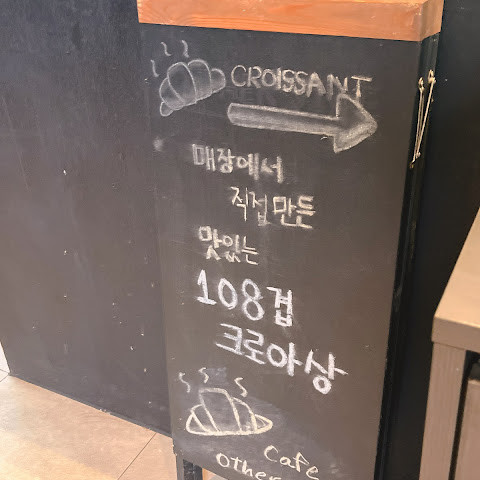 CROISSANT
매장에서
직접 만든
맛있는
108겹
크로아상
Cafe